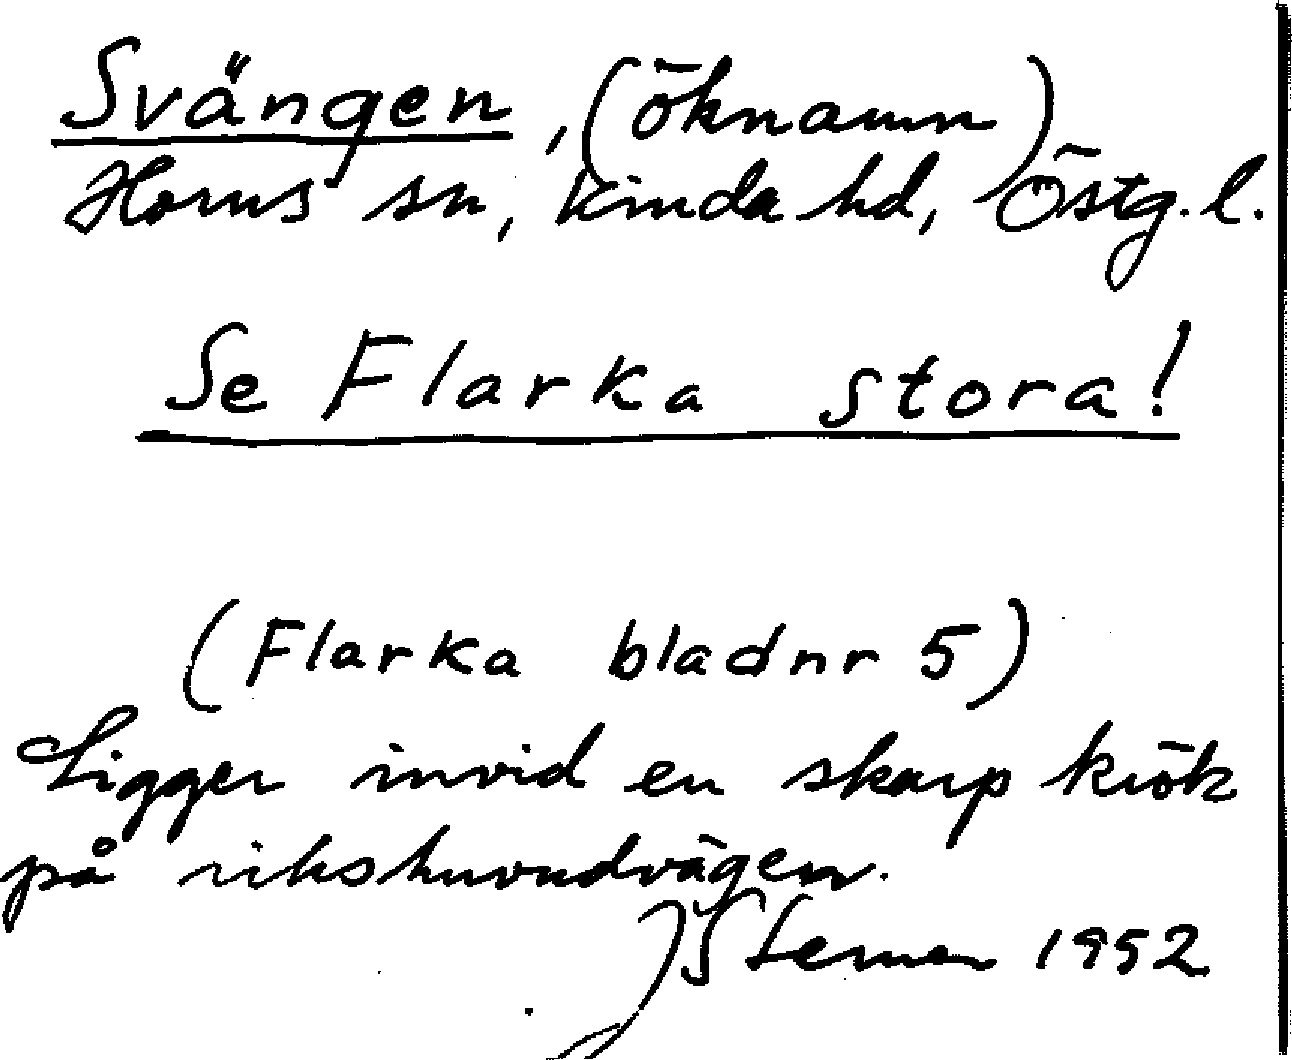 Svängen, (öknamn)
Horns sn, Kinda hd, Östg. l.
Se Flarka stora!
(Flarka blad nr 5)
Ligger invid en skarp krök
på rikshuvudvägen.
1952